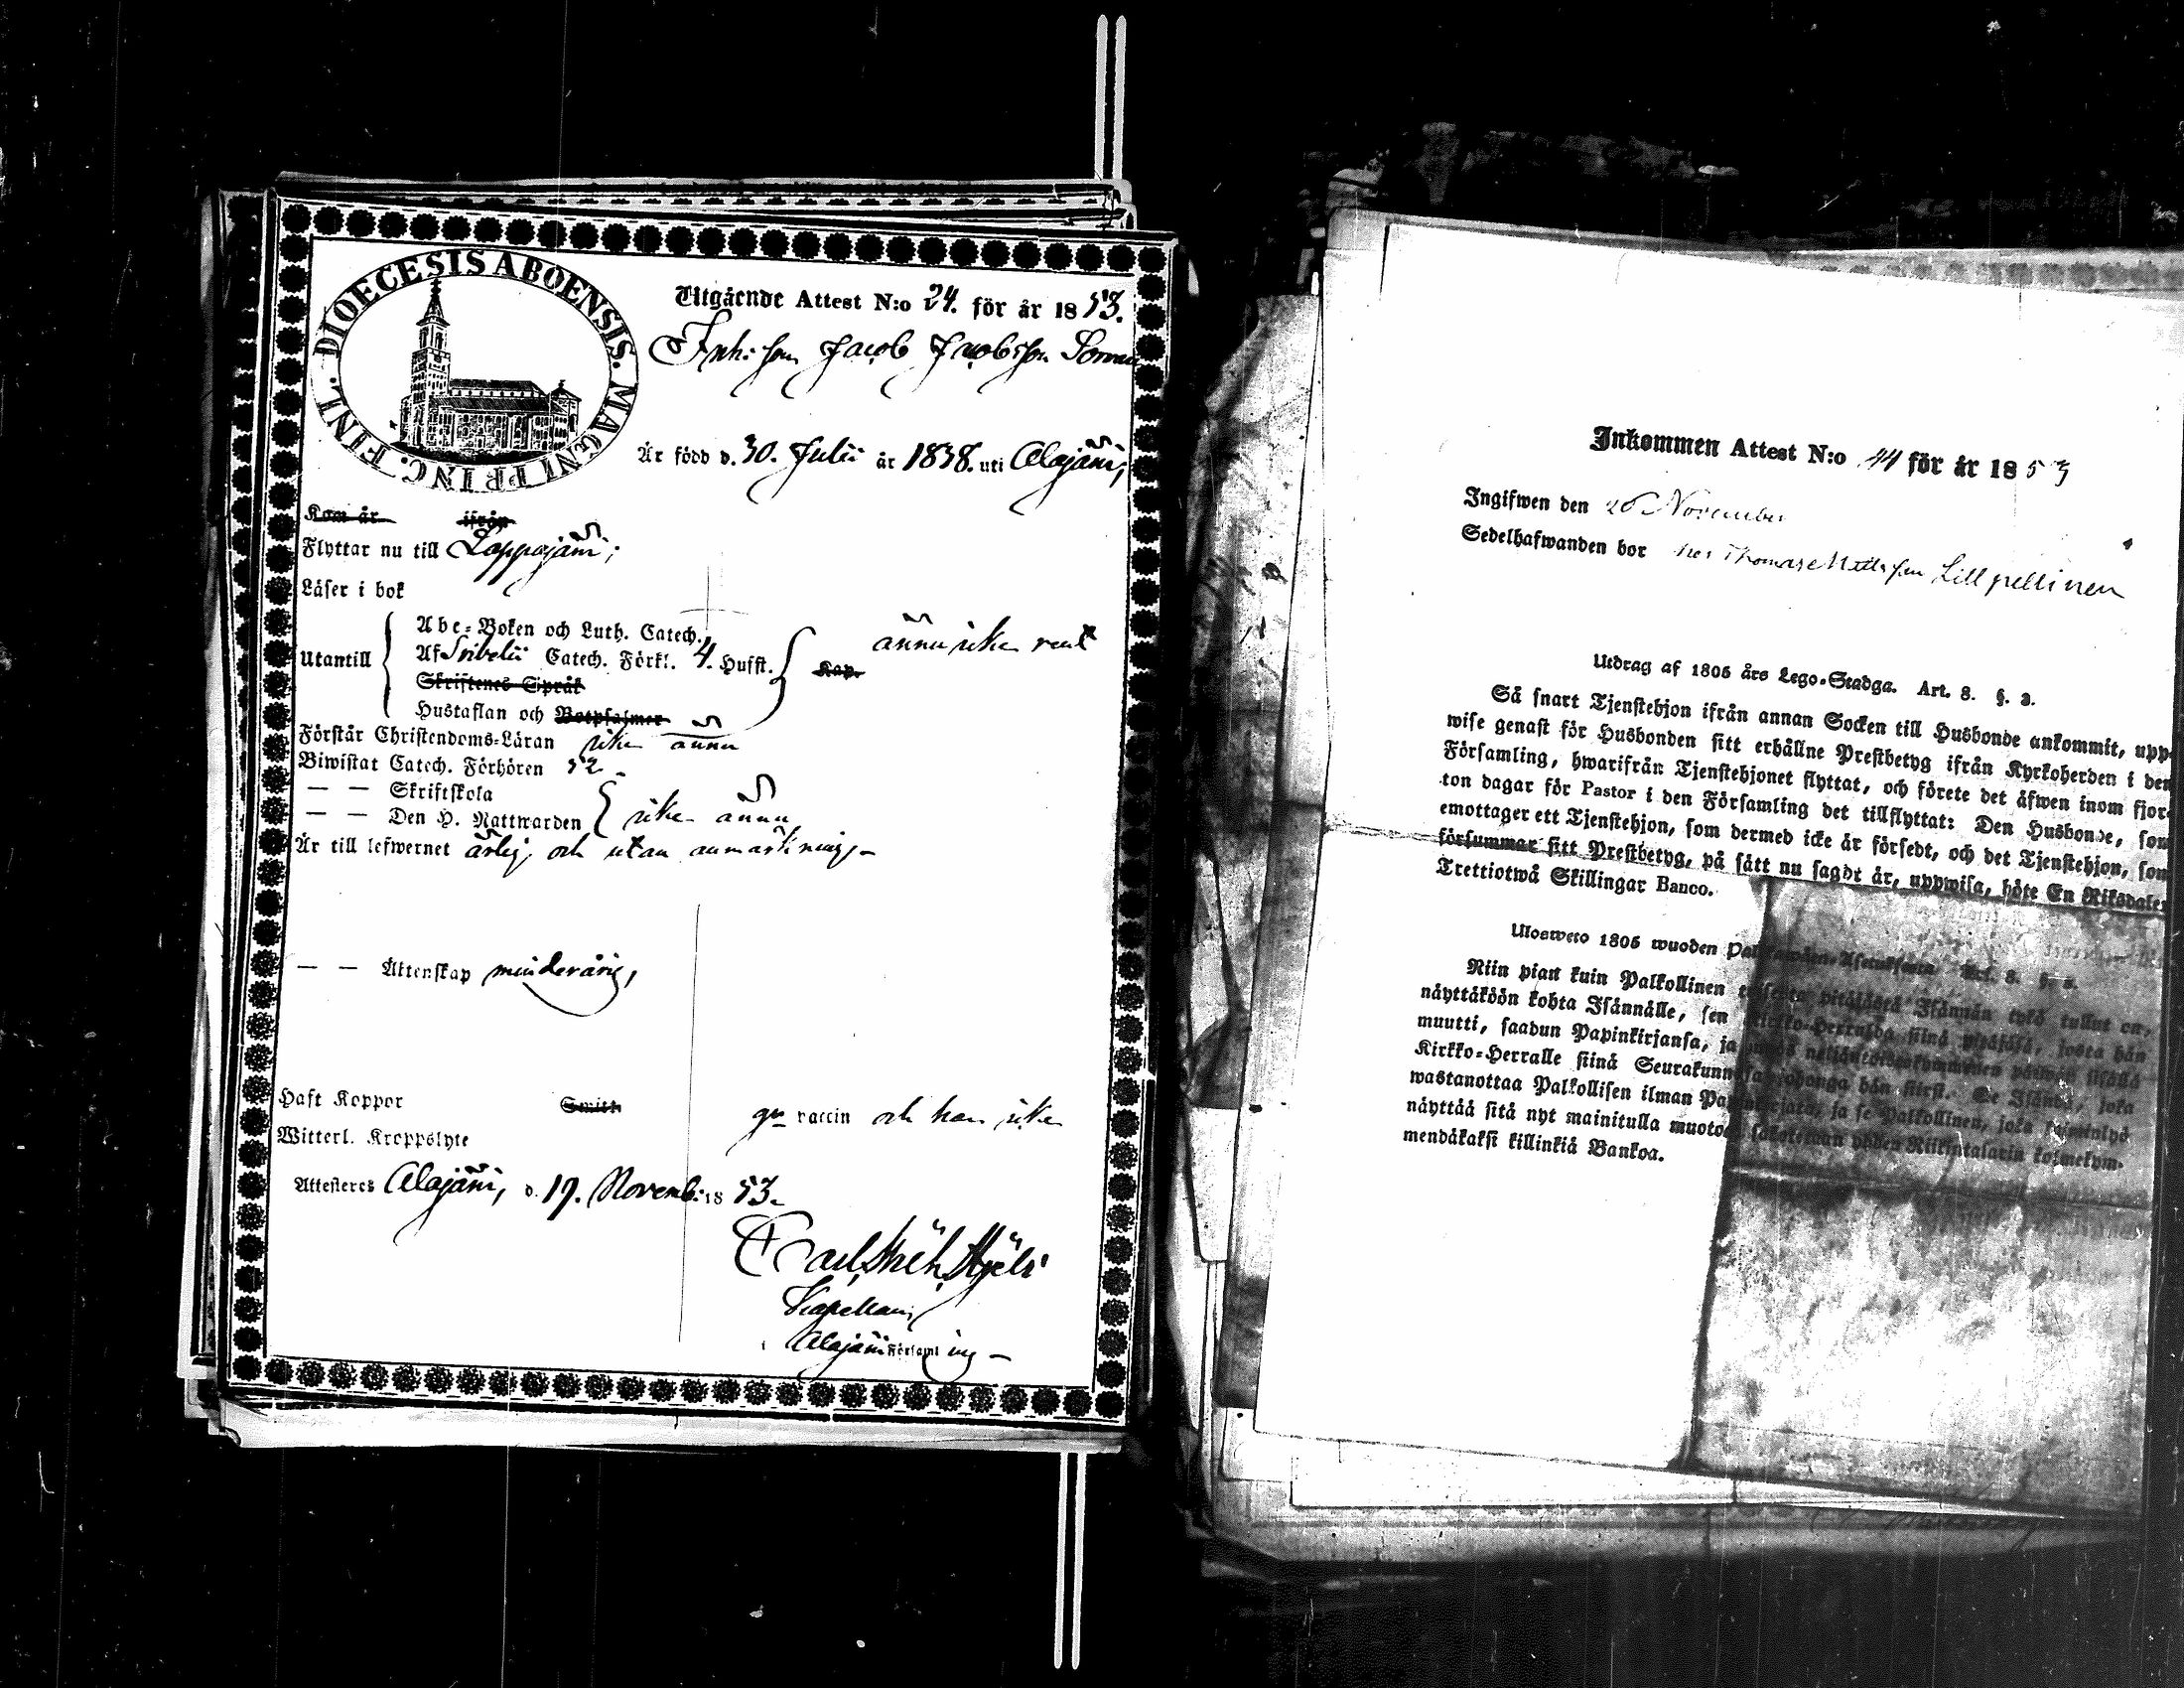 DIOECESIS ABOENSIS. MAGNI PRINC. FINL.
Utgående Attest N:o 24. för år 1853.
Jacob Jacobsson
Är född d. 30. Julii år 1838. uti Alajärvi,
Kom år ifrån
Flyttar nu till Lappajärvi;
Läser i bok
Utantill
Abc-Boken och Luth. Catech.
Af Svebelii Catech. Förkl. 4. Hufst.
Kap.
ännu icke rent
Skriftenes Språk
Hustaflan och Botpsalmer
Förstår Christendoms-Läran icke ännu
Biwistat Catech. Förhören 52
— — Skriftskola
— — Den H. Nattwarden icke ännu
Är till lefwernet ärlig och utan anmärkning,-
— — Äktenskap minderårig,
Haft Koppor Smitt
gm vaccin och han icke
Witterl. Kroppslyte
Attesteres Alajärvi, d. 19. Novemb: 1853.
Carl
Kapellan,
i Alajärvi Församling —
Inkommen Attest N:o 44 för år 1853
Ingifwen den 20 November
Sedelhafwanden bor hos Thomas Mattsson Lillpeltinen
Utdrag af 1805 års Lego-Stadga. Art. 8. §. 3.
Så snart Tjenstehjon ifrån annan Socken till Husbonde ankommit, upp-
wise genast för Husbonden sitt erhållne Prestbetyg ifrån Kyrkoherden i den
Församling, hwarifrån Tjenstehjonet flyttat, och förete det äfwen inom fjor-
ton dagar för Pastor i den Församling det tillflyttat: Den Husbonde, som
emottager ett Tjenstehjon, som dermed icke är försedt, och det Tjenstehjon, som
försummar sitt Prestbetyg, på sätt nu sagdt är, uppwisa, böte En Riksdaler
Trettiotwå Skillingar Banco.
Uloswero 1805 wuoden Art. 8. §. 3.
Niin pian kuin Palkollinen toisesta pitäjästä Isännän tykö tullut on,
näyttäköön kohta Isännälle, sen Kirkko-Herralda siinä pitäjäsä, josta hän
muutti, saadun Papinkirjansa, ja myös neljäntoistakymmenen päiwän sisällä
Kirkko-Herralle siinä Seurakunnassa johonga hän siirsi. Se Isändä, joka
wastanottaa Palkollisen ilman Papinkirjata, ja se Palkollinen, joka laiminlyö
näyttää sitä nyt mainitulla muotoa, sakotetaan yhden Riikintalarin kolmekym-
mendäkaksi killinkiä Bankoa.